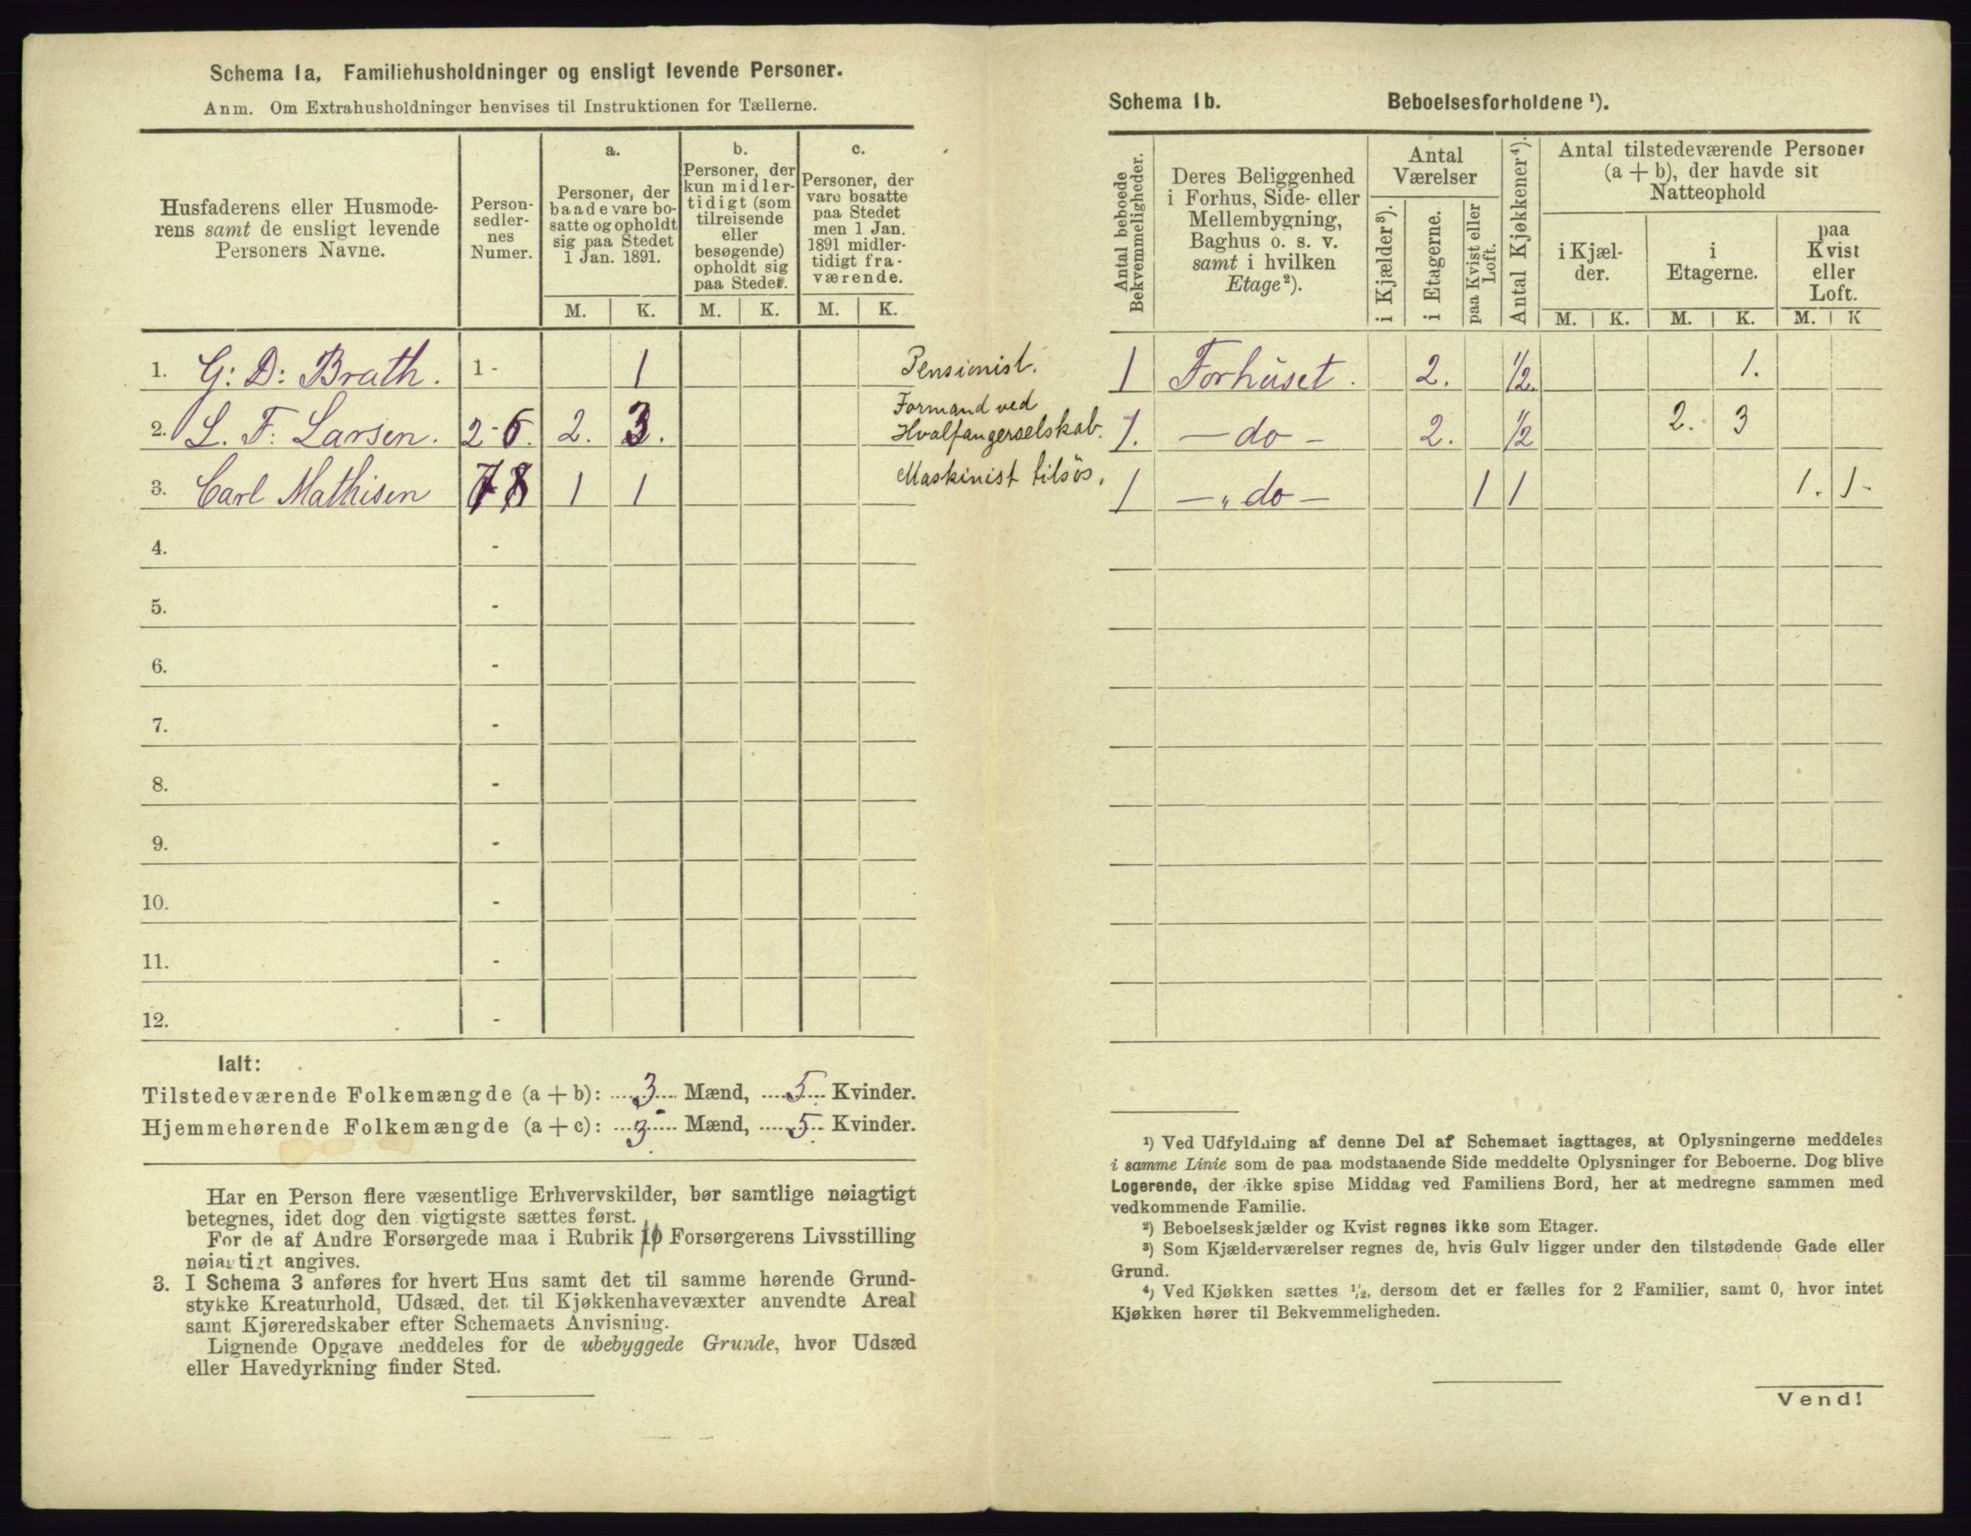 Schema 1a, Familiehusholdninger og ensligt levende Personer.
Anm. Om Extrahusholdninger henvises til Instruktionen for Tællerne.
Husfaderens eller Husmode-
rens samt de ensligt levende
Personers Navne.
Person-
sedler-
nes
Numer.
a.
Personer, der
baade vare bo-
satte og opholdt
sig paa Stedet
1 Jan. 1891.
b.
Personer, der
kun midler-
tidigt (som
tilreisende
eller
besøgende)
opholdt sig
paa Stedet.
c.
Personer, der
vare bosatte
paa Stedet
men 1 Jan.
1891 midler-
tidigt fra-
værende.
M. K. M. K. M. K.
1. G: D: Brath. 1 - 1 Pensionist.
2. L. F. Larsen. 2-6. 2. 3. Formand ved
Hvalfangerselskab.
3. Carl Mathisen 7-8 1 1 Maskinist tilsøs.
4. -
5. -
6. -
7. -
8. -
9. -
10. -
11. -
12. -
Ialt:
Tilstedeværende Folkemængde (a + b): 3 Mænd, 5 Kvinder.
Hjemmehørende Folkemængde (a + c): 3 Mænd, 5 Kvinder.
Har en Person flere væsentlige Erhvervskilder, bør samtlige nøiagtigt
betegnes, idet dog den vigtigste sættes først.
For de af Andre Forsørgede maa i Rubrik 10 Forsørgerens Livsstilling
nøiagtigt angives.
3. I Schema 3 anføres for hvert Hus samt det til samme hørende Grund-
stykke Kreaturhold, Udsæd, det til Kjøkkenhavevæxter anvendte Areal
samt Kjøreredskaber efter Schemaets Anvisning.
Lignende Opgave meddeles for de ubebyggede Grunde, hvor Udsæd
eller Havedyrkning finder Sted.
Schema 1b. Beboelsesforholdene ¹).
Antal beboede
Bekvemmeligheder.
Deres Beliggenhed
i Forhus, Side- eller
Mellembygning,
Baghus o. s. v.
samt i hvilken
Etage²).
Antal
Værelser
i Kjælder³).
i Etagerne.
paa Kvist eller
Loft.
Antal Kjøkkener⁴).
Antal tilstedeværende Personer
(a + b), der havde sit
Natteophold
i Kjæl-
der.
i
Etagerne.
paa
Kvist
eller
Loft.
M. K. M. K. M. K
1 Forhuset. 2. 1/2. 1.
1. — do — 2. 1/2 2. 3
1 — „ do — 1 1 1. 1-
¹) Ved Udfyldning af denne Del af Schemaet iagttages, at Oplysningerne meddeles
i samme Linie som de paa modstaaende Side meddelte Oplysninger for Beboerne. Dog blive
Logerende, der ikke spise Middag ved Familiens Bord, her at medregne sammen med
vedkommende Familie.
²) Beboelseskjælder og Kvist regnes ikke som Etager.
³) Som Kjælderværelser regnes de, hvis Gulv ligger under den tilstødende Gade eller
Grund.
⁴) Ved Kjøkken sættes ½, dersom det er fælles for 2 Familier, samt 0, hvor intet
Kjøkken hører til Bekvemmeligheden.
Vend!